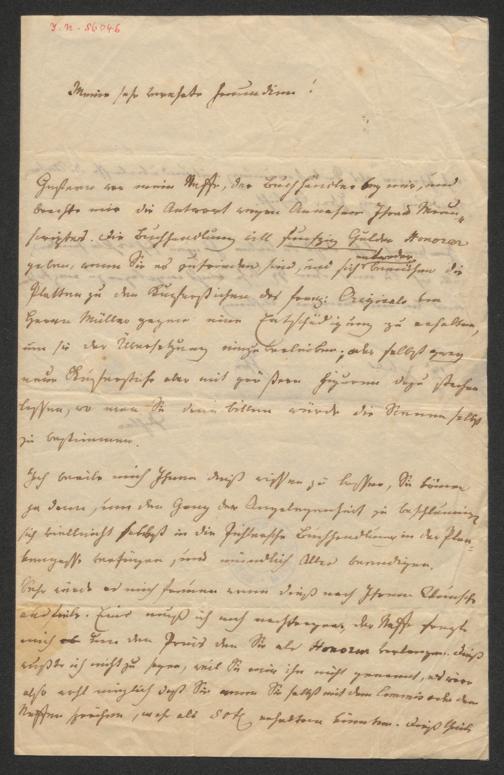 I. N. 56046
Meine sehr verehrte Freundinn!
Gestern war mein Neffe, der Buchhändler bey mir, und
brachte mir die Antwort wegen Annahme Ihres Manu-
scriptes. Die Buchhandlung will funfzig Gulden Honorar
geben, wenn Sie es zufrieden sind, und sich bemühen die
entweder
Platten zu den Kupferstichen des franz: Originals bey
Herrn Müller gegen eine Entschädigung zu erhalten,
um sie der Übersetzung einzuverleiben, oder selbst zwey
neue Kupferstiche aber mit größern Figuren dazu stechen
lassen, wo man Sie dann bitten würde die Scenen selbst
zu bestimmen.
Ich beeile mich Ihnen dieß wissen zu lassen, Sie können
ja dann, um den Gang der Angelegenheit zu beschleunigen
sich vielleicht selbst in die Buchhandlung in der Plan-
kengasse verfügen, und mündlich Alles beendigen.
Sehr würde es mich freuen wenn dieß nach Ihrem Wunsche
ausfiele. Eins muß ich noch nachtragen, der Neffe fragte
mich um den Preis den Sie als Honorar verlangen. Dieß
wußte ich nicht zu sagen, weil Sie mir ihn nicht genannt, es wäre
also wohl möglich daß Sie wenn Sie selbst mit dem Commis oder dem
Neffen sprächen, mehr als 50 f. erhalten könnten. Dieß